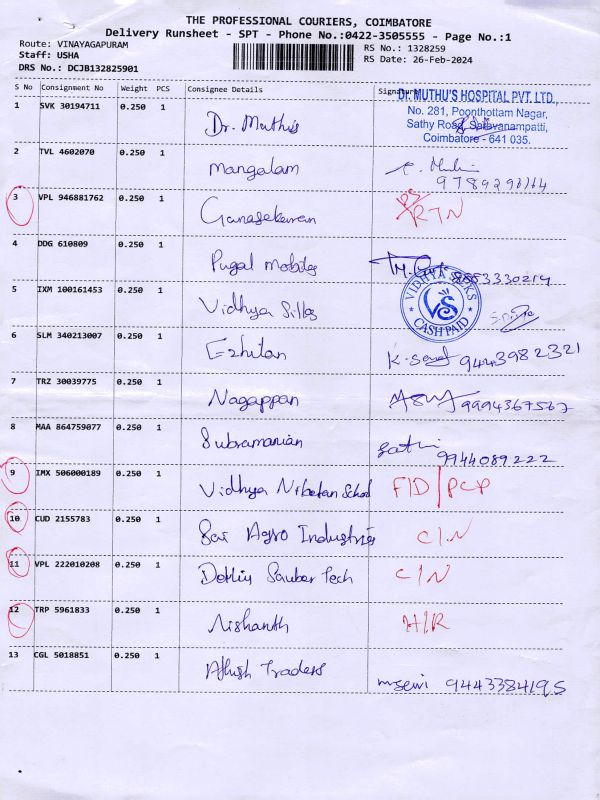 THE PROFESSIONAL COURIERS, COIMBATORE
Delivery Runsheet - SPT - Phone No.:0422-3505555 - Page No.:1
Route: VINAYAGAPURAM
RS No.: 1328259
Staff: USHA
RS Date: 26-Feb-2024
DRS No.: DCJB132825901
S No Consignment No Weight PCS Consignee Details Signature
1 SVK 30194711 0.250 1 Dr. Muthu's
Dr. MUTHU'S HOSPITAL PVT. LTD.,
No. 281, Poonthottam Nagar,
Sathy Road, Saravanampatti,
Coimbatore - 641 035.
2 TVL 4602070 0.250 1 Mangalam
3 VPL 946881762 0.250 1 Gunasekaran RTN
4 DDG 610809 0.250 1 Pugal Mobiles
5 IXM 100161453 0.250 1 Vidhya Silks
VIDHYA SILKS
VS
CASH PAID
6 SLM 340213007 0.250 1 Ezhilan 9443982321
7 TRZ 30039775 0.250 1 Nagappan 9994367567
8 MAA 864759077 0.250 1 Subramanian 9944089222
9 IMX 506000189 0.250 1 Vidhya Niketan School FID/PCP
10 CUD 2155783 0.250 1 Sai Agro Industries C/N
11 VPL 222010208 0.250 1 Tech C/N
12 TRP 5961833 0.250 1 Nishanth H/R
13 CGL 5018851 0.250 1 Traders